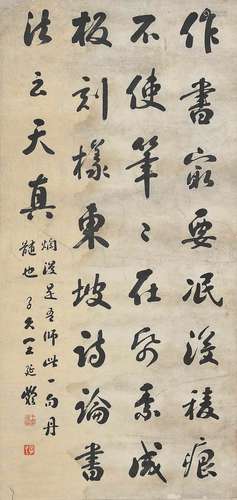 作書最要泯沒稜痕
不使筆〻在紙素成
板刻樣東坡詩論書
法云天真
爛漫是吾師此一句丹
髓也 子久王